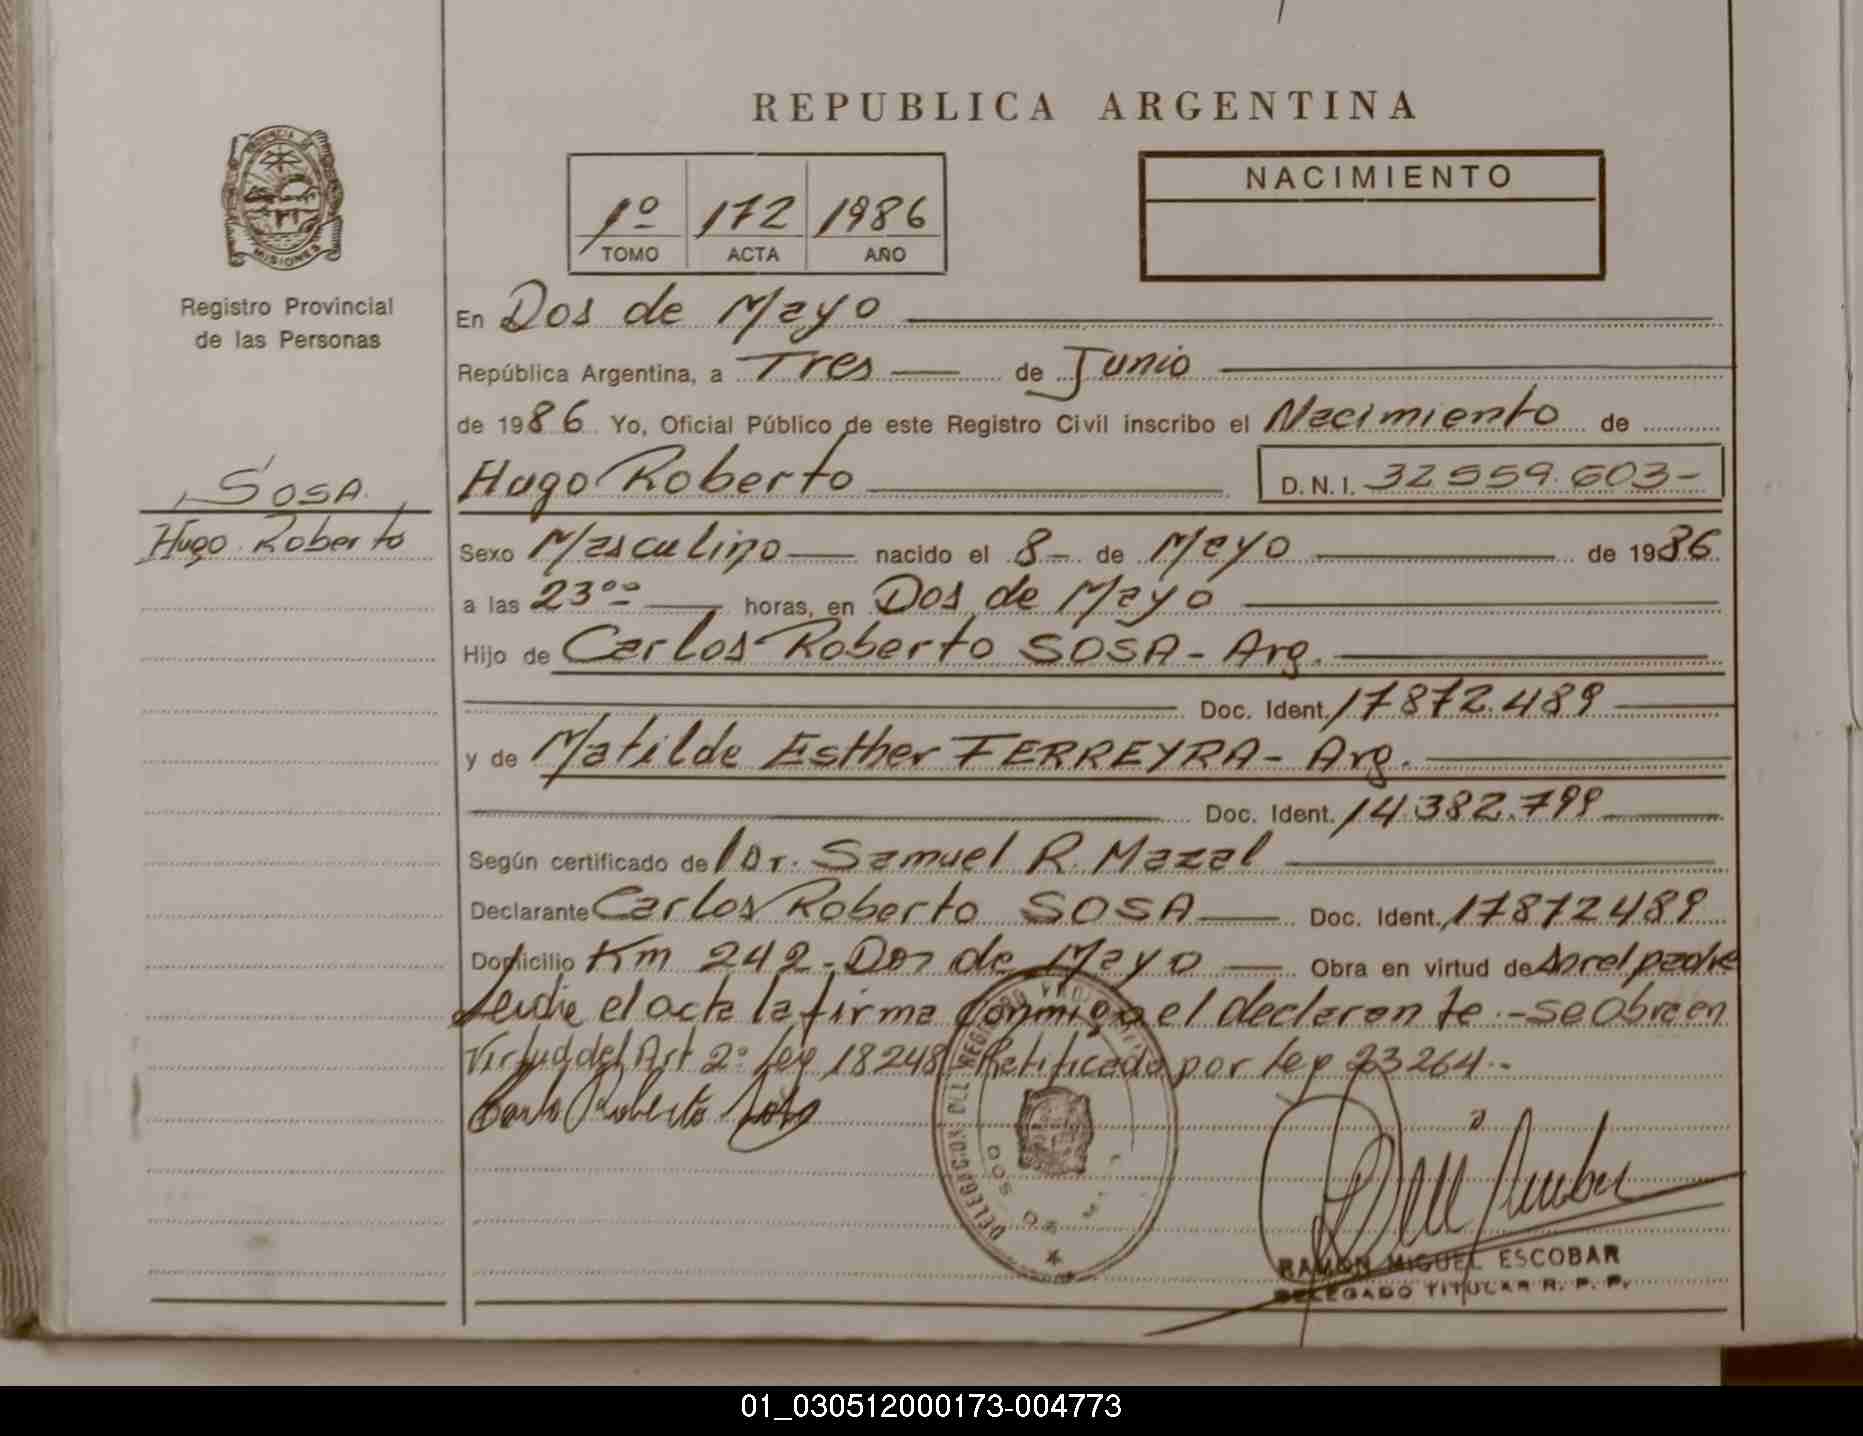 REPUBLICA ARGENTINA
PROVINCIA DE
MISIONES
Registro Provincial
de las Personas
1º 172 1986
TOMO ACTA AÑO
NACIMIENTO
En Dos de Mayo
República Argentina, a Tres de Junio
de 1986 Yo, Oficial Público de este Registro Civil inscribo el Nacimiento de
SOSA
Hugo Roberto
Hugo Roberto D.N.I. 32559.603-
Sexo Masculino nacido el 8 de Mayo de 1986
a las 23ºº horas, en Dos de Mayo
Hijo de Carlos Roberto SOSA - Arg.
Doc. Ident. 17872.489
y de Matilde Esther FERREYRA - Arg.
Doc. Ident. 14.382.799
Según certificado de Dr. Samuel R. Mazal
Declarante Carlos Roberto SOSA Doc. Ident. 17872489
Domicilio Km 242 - Dos de Mayo Obra en virtud de Ser el padre
Leida el acta la firma conmigo el declarante.- se Obra en
Virtud del Art 2º Ley 18248 Retificada por Ley 23264.-
Carlo Roberto Soso
DOS DE
RAMON MIGUEL ESCOBAR
DELEGADO TITULAR R. P. P.
01_030512000173-004773